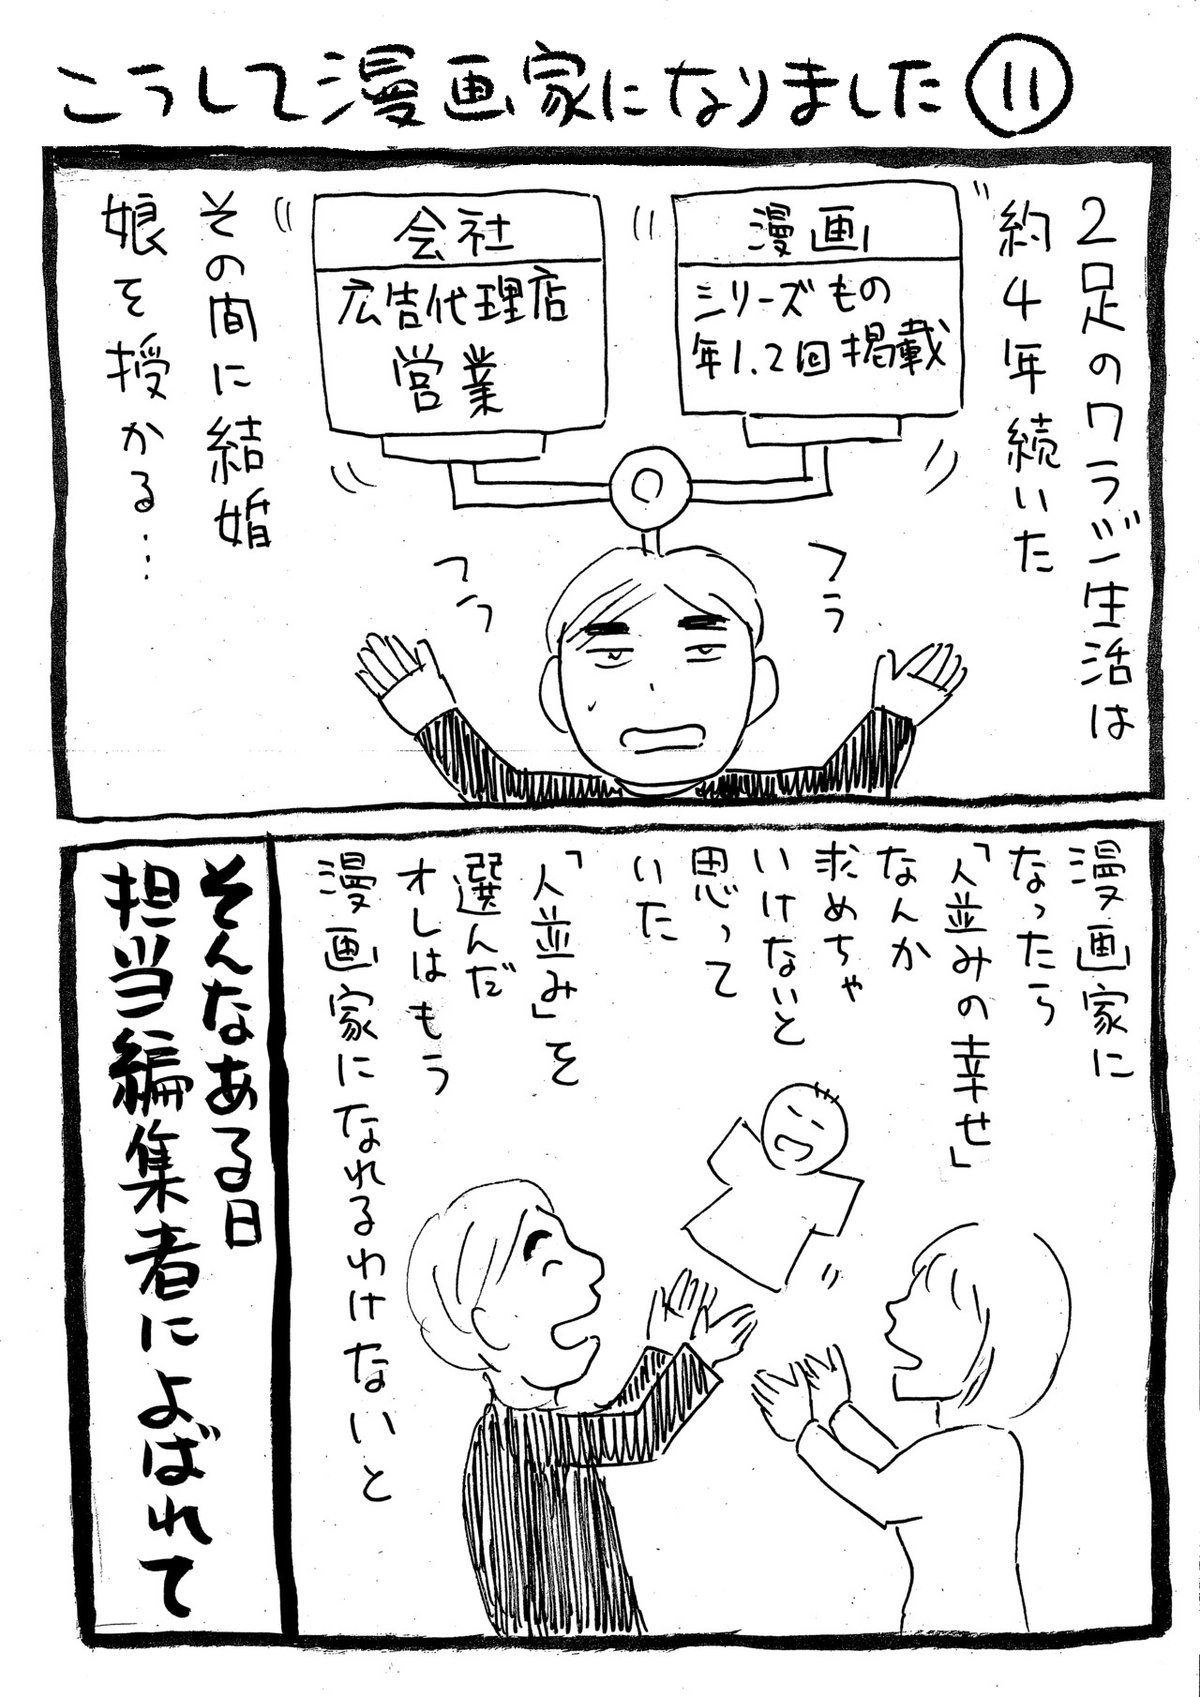 こうして漫画家になりました⑪
2足のワラジ生活は
約4年続いた
漫画
シリーズもの
年1.2回掲載
会社
広告代理店
営業
フラ
フラ
その間に結婚
娘を授かる…
漫画家に
なったら
「人並みの幸せ」
なんか
求めちゃ
いけないと
思って
いた
「人並み」を
選んだ
オレはもう
漫画家になれるわけないと
そんなある日
担当編集者によばれて